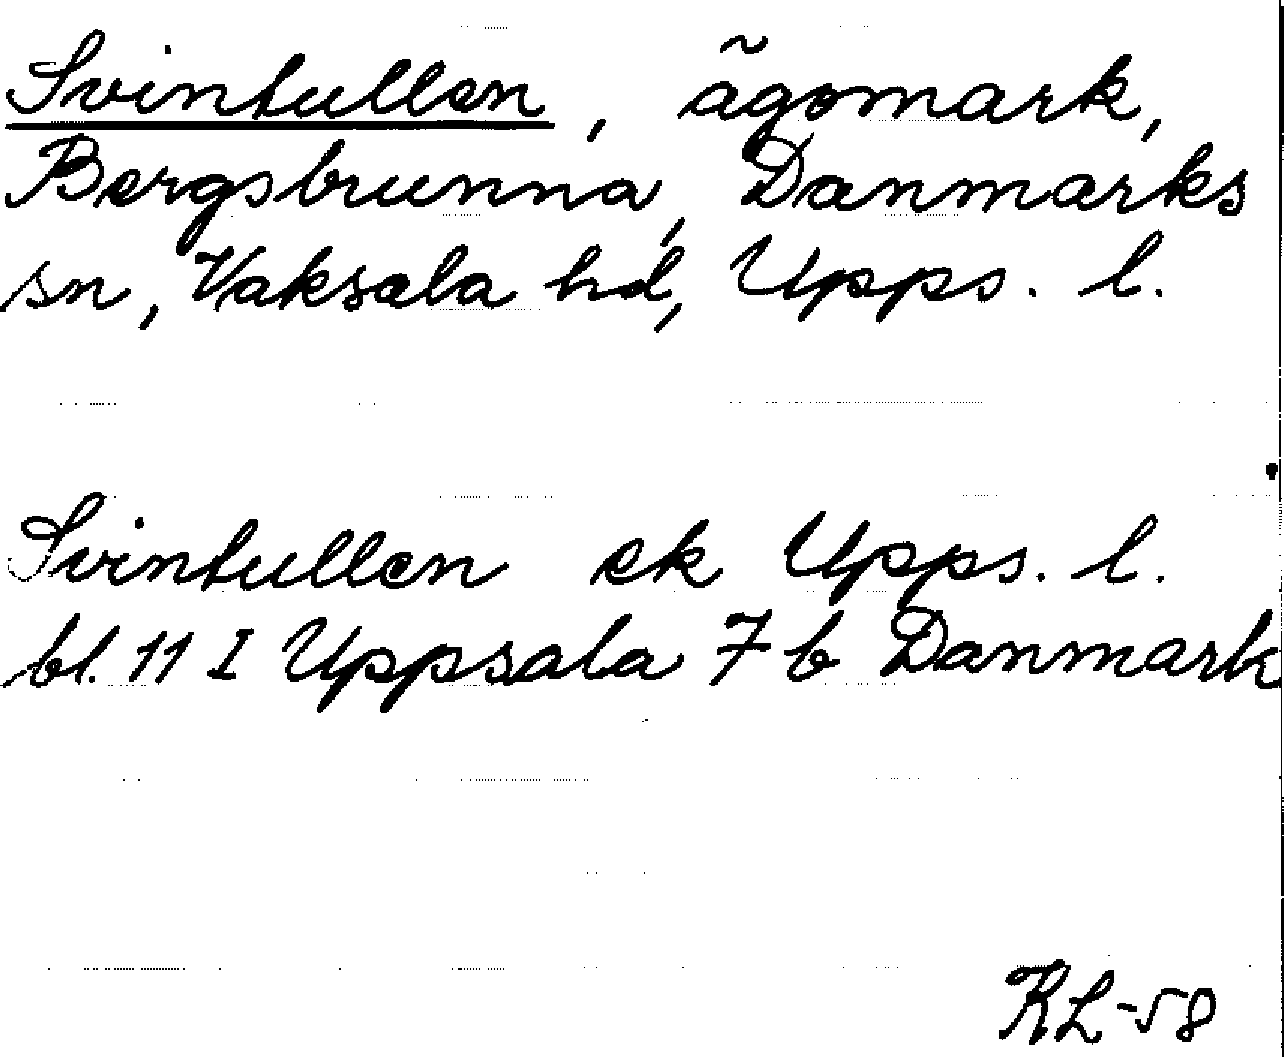 Svintullen, ägomark,
Bergsbrunna, Danmarks
sn, Vaksala hd, Upps. l.
Svintullen ek Upps. l.
bl. 11 I Uppsala 7 b Danmark
KL-58